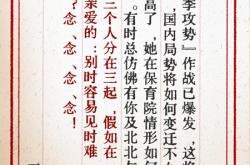 李攻势』作战已爆发，这
，国内局势将如何变迁不
高了，她在保育院情形如
。有时总仿佛有你及北北
三个人分在三起，假如在
亲爱的：别时容易见时难
？念、念、念、念！